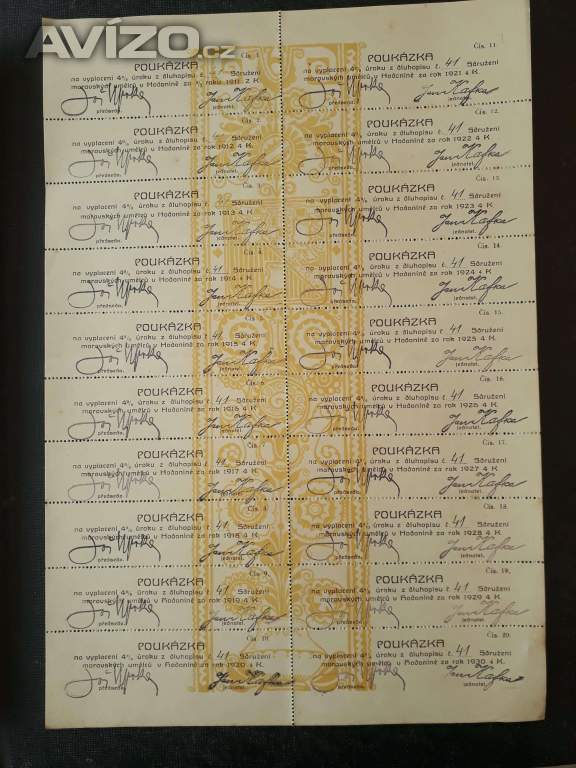 AVÍZO.cz
Čís. 1.
POUKÁZKA
na vyplacení 4% úroku z dluhopisu č. Sdružení
za ½ roku 1911 2 K.
předseda. Jan Kafka
Čís. 2.
POUKÁZKA
na vyplacení 4% úroku z dluhopisu č. Sdružení
moravských umělců v Hodoníně za rok 1912 4 K.
předseda. Jan Kafka
Čís. 3.
POUKÁZKA
na vyplacení 4% úroku z dluhopisu č. Sdružení
moravských umělců v Hodoníně za rok 1913 4 K.
předseda. Jan Kafka
Čís. 4.
POUKÁZKA
na vyplacení 4% úroku z dluhopisu č. 41 Sdružení
moravských umělců v Hodoníně za rok 1914 4 K.
předseda. Jan Kafka
Čís. 5.
POUKÁZKA
na vyplacení 4% úroku z dluhopisu č. 41 Sdružení
moravských umělců v Hodoníně za rok 1915 4 K.
předseda. Jan Kafka
POUKÁZKA
na vyplacení 4% úroku z dluhopisu č. 41 Sdružení
moravských umělců v Hodoníně za rok 1916 4 K.
předseda. Jan Kafka
POUKÁZKA
na vyplacení 4% úroku z dluhopisu č. 41 Sdružení
moravských umělců v Hodoníně za rok 1917 4 K.
předseda. Jan Kafka
POUKÁZKA
na vyplacení 4% úroku z dluhopisu č. 41 Sdružení
moravských umělců v Hodoníně za rok 1918 4 K.
předseda. Jan Kafka
Čís. 9.
POUKÁZKA
na vyplacení 4% úroku z dluhopisu č. 41 Sdružení
moravských umělců v Hodoníně za rok 1919 4 K.
předseda. Jan Kafka
Čís. 10.
POUKÁZKA
na vyplacení 4% úroku z dluhopisu č. 41 Sdružení
moravských umělců v Hodoníně za rok 1920 4 K.
předseda. Jan Kafka
Čís. 11.
POUKÁZKA
na vyplacení 4% úroku z dluhopisu č. 41 Sdružení
moravských umělců v Hodoníně za rok 1921 4 K.
Jan Kafka jednatel.
Čís. 12.
POUKÁZKA
na vyplacení 4% úroku z dluhopisu č. 41 Sdružení
moravských umělců v Hodoníně za rok 1922 4 K.
předseda. Jan Kafka jednatel.
Čís. 13.
POUKÁZKA
na vyplacení 4% úroku z dluhopisu č. 41 Sdružení
moravských umělců v Hodoníně za rok 1923 4 K.
předseda. Jan Kafka jednatel.
Čís. 14.
POUKÁZKA
na vyplacení 4% úroku z dluhopisu č. 41 Sdružení
moravských umělců v Hodoníně za rok 1924 4 K.
předseda. Jan Kafka jednatel.
Čís. 15.
POUKÁZKA
na vyplacení 4% úroku z dluhopisu č. 41 Sdružení
moravských umělců v Hodoníně za rok 1925 4 K.
předseda. Jan Kafka jednatel.
Čís. 16.
POUKÁZKA
na vyplacení 4% úroku z dluhopisu č. 41 Sdružení
moravských umělců v Hodoníně za rok 1926 4 K.
předseda. Jan Kafka jednatel.
Čís. 17.
POUKÁZKA
na vyplacení 4% úroku z dluhopisu č. 41 Sdružení
moravských umělců v Hodoníně za rok 1927 4 K.
předseda. Jan Kafka jednatel.
Čís. 18.
POUKÁZKA
na vyplacení 4% úroku z dluhopisu č. 41 Sdružení
moravských umělců v Hodoníně za rok 1928 4 K.
předseda. Jan Kafka jednatel.
Čís. 19.
POUKÁZKA
na vyplacení 4% úroku z dluhopisu č. 41 Sdružení
moravských umělců v Hodoníně za rok 1929 4 K.
předseda. Jan Kafka jednatel.
Čís. 20.
POUKÁZKA
na vyplacení 4% úroku z dluhopisu č. 41 Sdružení
moravských umělců v Hodoníně za rok 1930 4 K.
předseda. Jan Kafka jednatel.